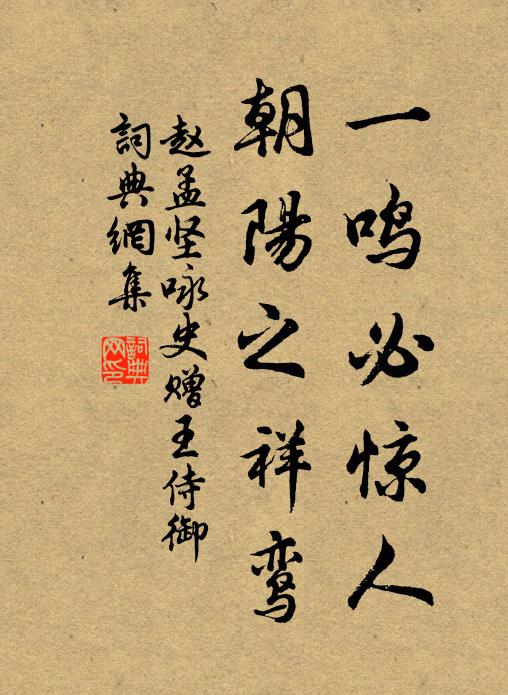 一鸣必惊人
朝陽之祥鸾
赵孟坚咏史赠王侍御
詞典網集
詞典网印